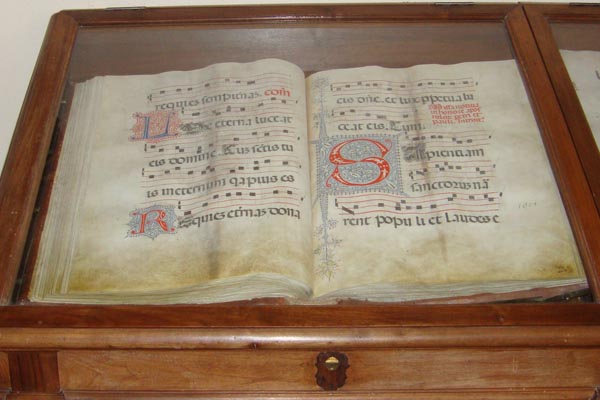 requies sempitna. com
eterna luceat
eis domine. Cus scis tu
is ineternum qa pius es
Requies etnas dona
cis dne. et lux ppetua lu
ceat eis.
Sapientiam
sanctorum na
rent populi et laudes e